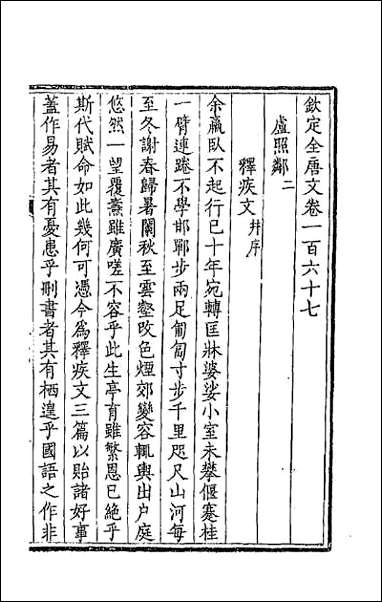 欽定全唐文卷一百六十七
盧照鄰二
釋疾文并序
余羸臥不起行已十年宛轉匡牀婆娑小室未攀偃蹇桂
一臂連踡不學邯鄲步兩足匍匐寸步千里咫尺山河每
至冬謝春歸暑闌秋至雲壑改色煙郊變容輒輿出戶庭
悠然一望覆燾雖廣嗟不容乎此生亭育雖繁恩已絕乎
斯代賦命如此幾何可憑今為釋疾文三篇以貽諸好事
蓋作易者其有憂患乎刪書者其有栖遑乎國語之作非